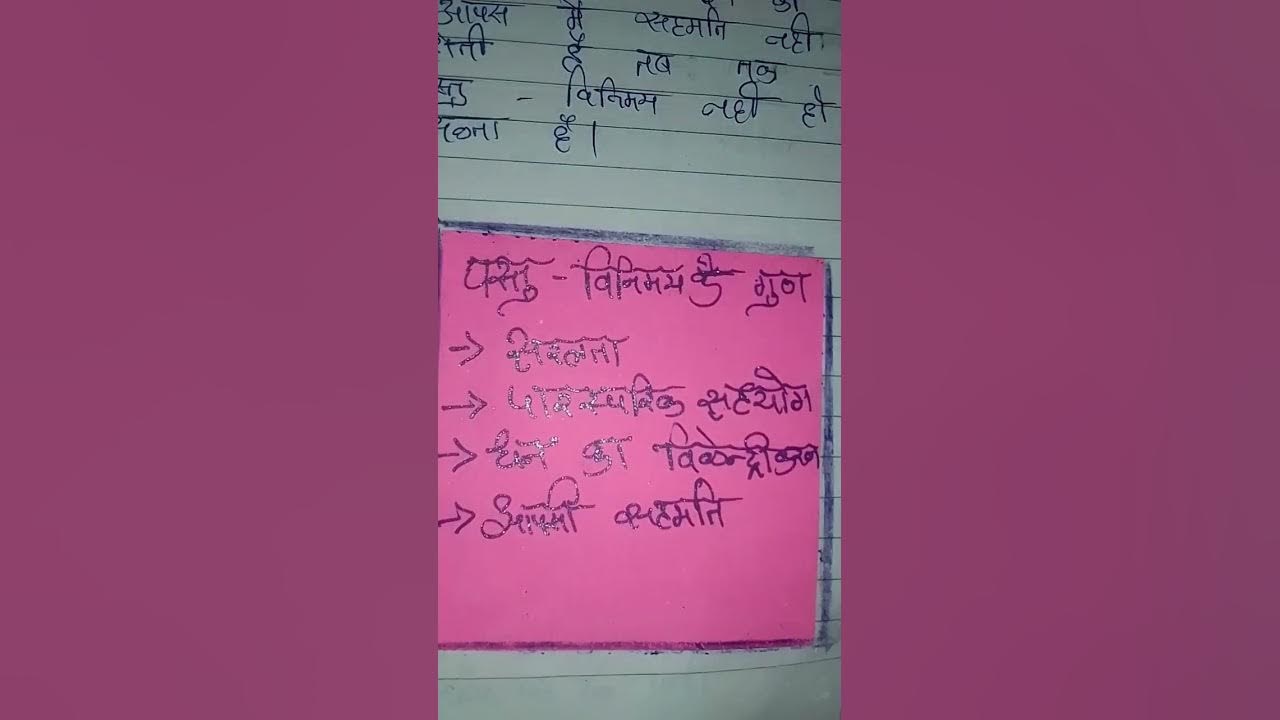 आपस में सहमति नही
होती है तब तक
वस्तु - विनिमय नही हो
सकता है।
वस्तु - विनिमय के गुण
→ सरलता
→ पारस्परिक सहयोग
→ धन का विकेन्द्रीकरन
→ आपसी सहमति